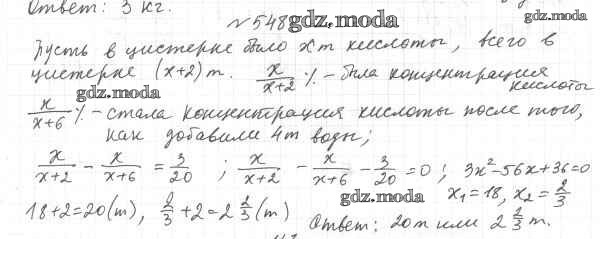 Ответ: 3 кг.
gdz.moda
№548 gdz.moda
Пусть в цистерне было x т кислоты, всего в
цистерне (x+2) т. x/(x+2) % – была концентрация кислоты
gdz.moda
x/(x+6) % – стала концентрация кислоты после того,
как добавили 4т воды;
x/(x+2) - x/(x+6) = 3/20 ; x/(x+2) - x/(x+6) - 3/20 = 0 ; 3x²-56x+36=0
gdz.moda x₁=18, x₂=2/3
18+2=20(т), 2/3+2=2 2/3(т)
Ответ: 20т или 2 2/3 т.